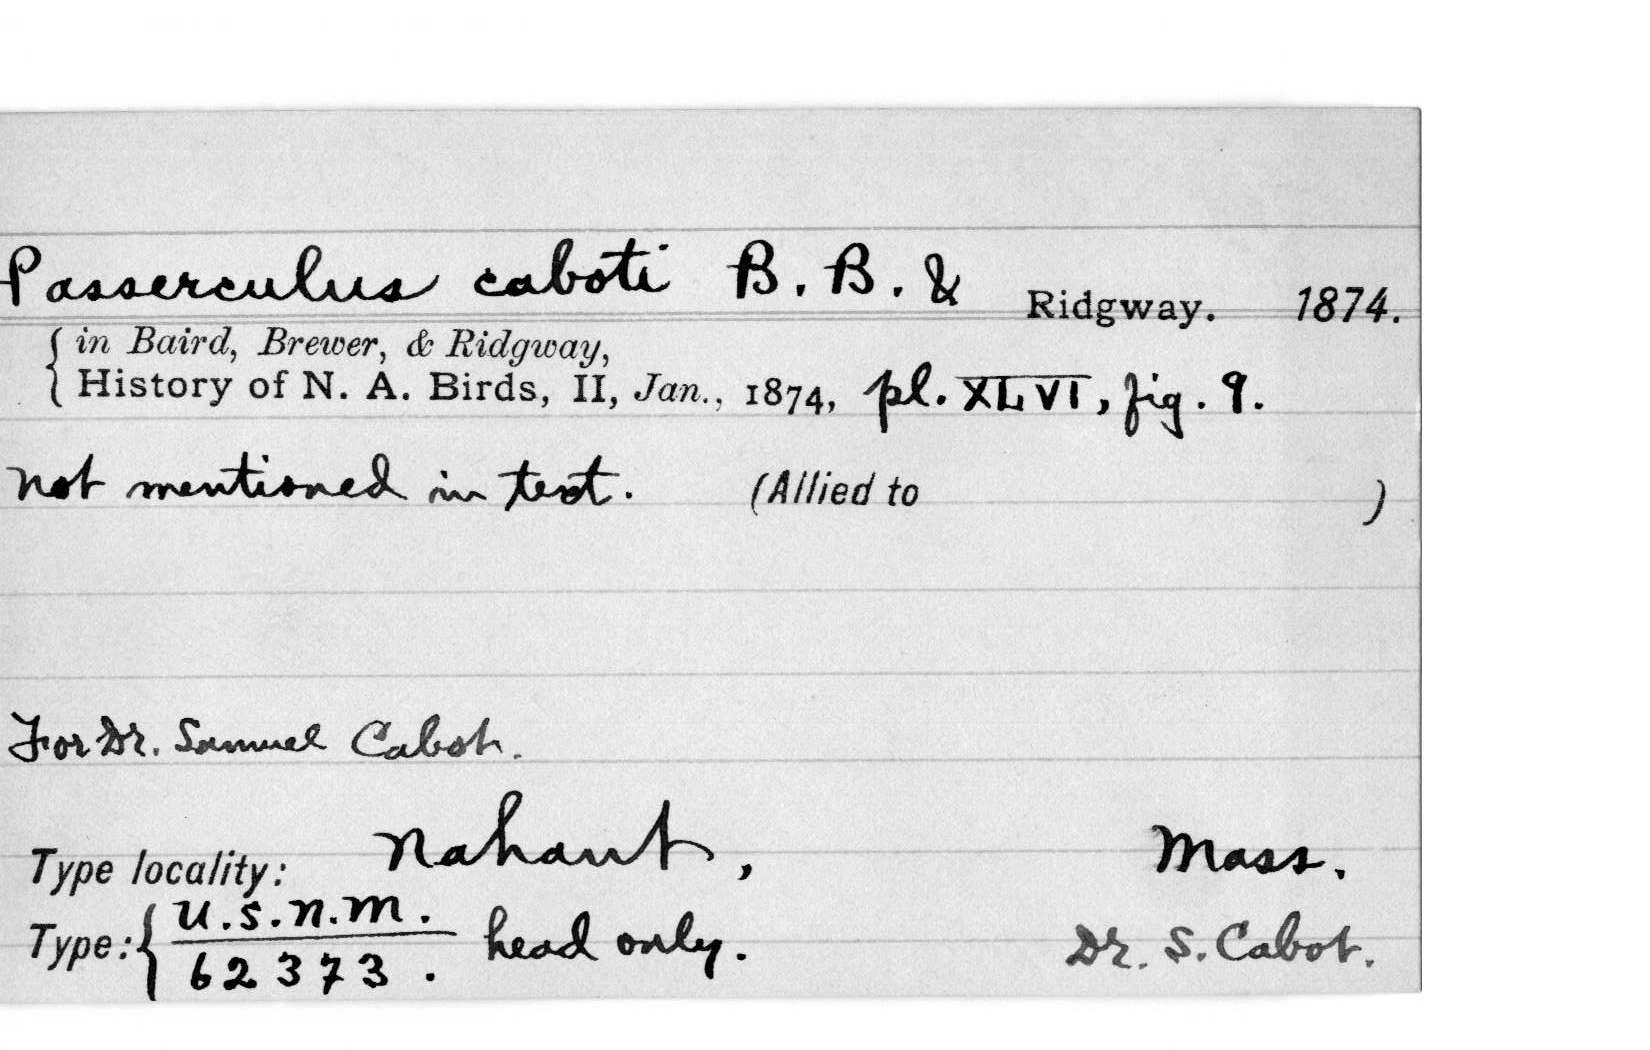 Passerculus caboti B. B. & Ridgway. 1874.
in Baird, Brewer, & Ridgway,
History of N. A. Birds, II, Jan., 1874, pl. XLVI, fig. 9.
not mentioned in text. (Allied to )
For Dr. Samuel Cabot.
Type locality: Nahant, Mass.
Type: { U.S.N.M. head only. Dr. S. Cabot.
62373.